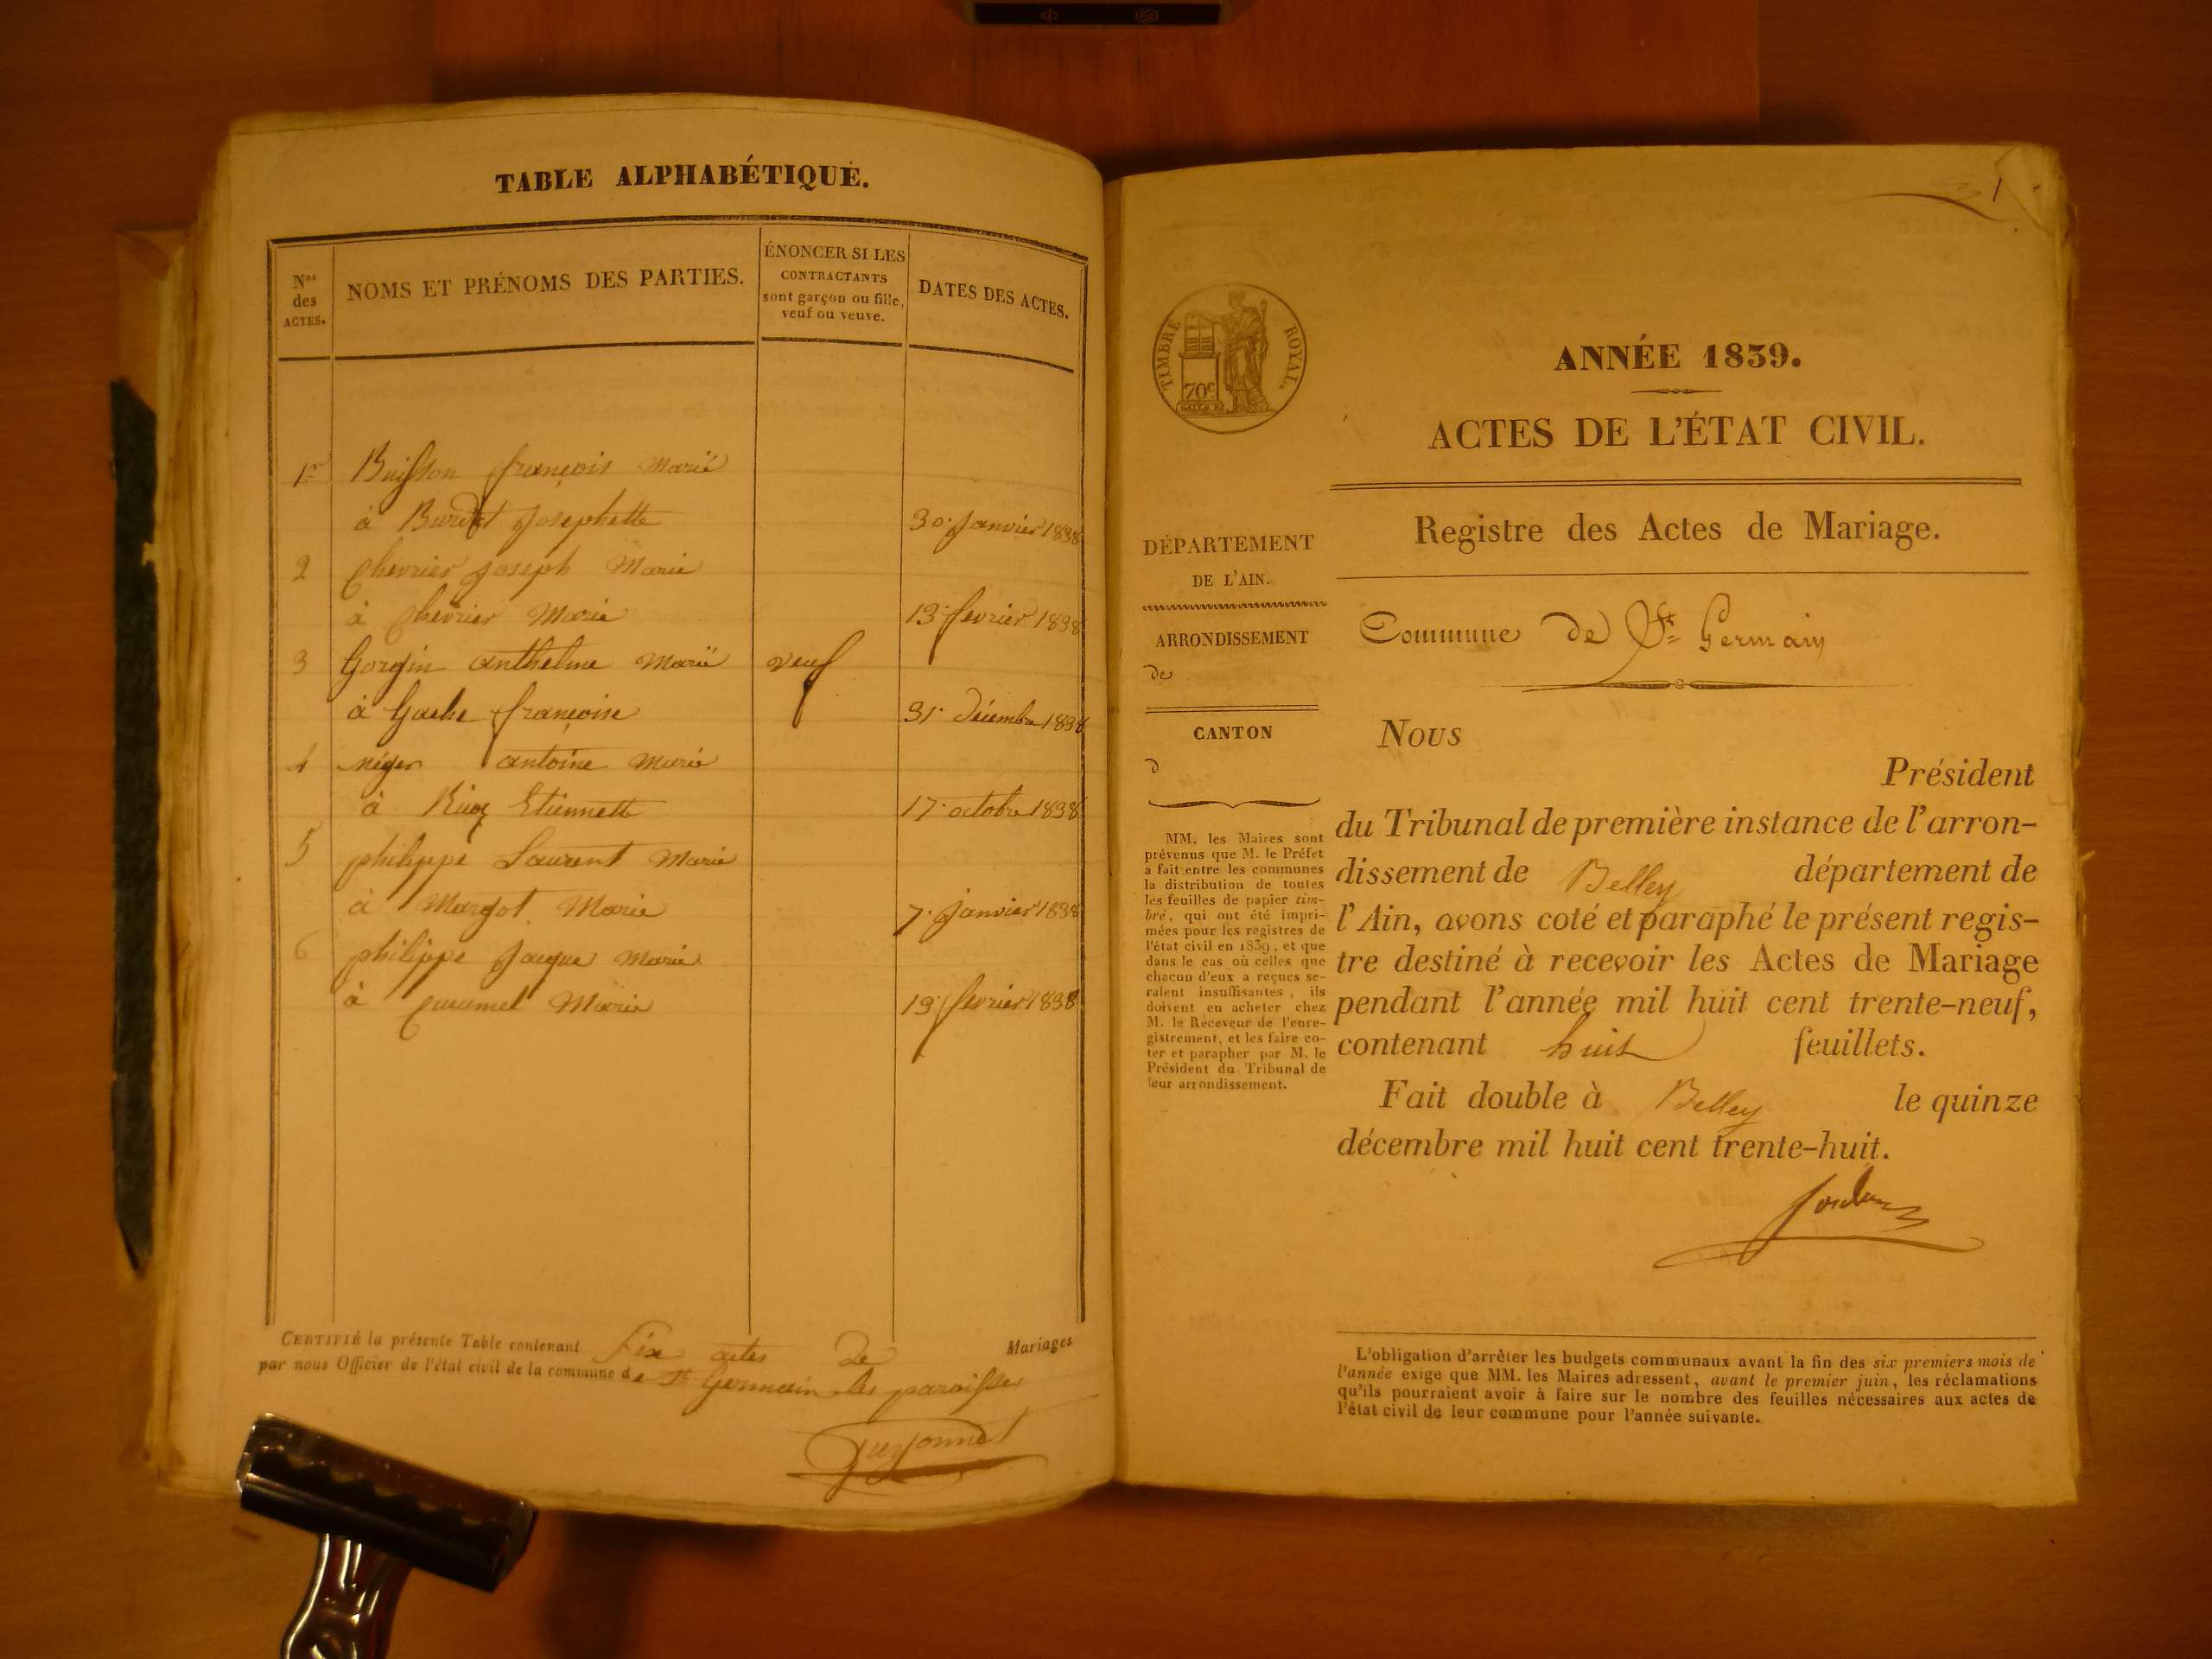 TABLE ALPHABÉTIQUE.
Nos des ACTES.
NOMS ET PRÉNOMS DES PARTIES.
ÉNONCER SI LES
CONTRACTANTS
sont garçon ou fille,
veuf ou veuve.
DATES DES ACTES.
1er Buisson françois Marié
à Burdet Josephette 30 Janvier 1838
2 Chevrier Joseph Marié
à Chevrier Marie 13 fevrier 1838
3 Gorgin anthelme Marié veuf
à Gache françoise 31 Décembre 1838
4 néger antoine Marié
à Etiennette 17 octobre 1838
5 philippe Laurent Marié
à Margot Marie 7 Janvier 1838
6 philippe Jacque Marié
à Marie 19 fevrier 1838
CERTIFIÉ la présente Table contenant Six actes de Mariages
par nous Officier de l'état civil de la commune de St Germain les paroisses
TIMBRE ROYAL.
70c
ANNÉE 1839.
ACTES DE L'ÉTAT CIVIL.
Registre des Actes de Mariage.
DÉPARTEMENT
DE L'AIN.
ARRONDISSEMENT
de
CANTON
d
MM. les Maires sont
prévenus que M. le Préfet
a fait entre les communes
la distribution de toutes
les feuilles de papier tim-
bré, qui ont été impri-
mées pour les registres de
l'état civil en 1839, et que
dans le cas où celles que
chacun d'eux a reçues se-
raient insuffisantes, ils
doivent en acheter chez
M. le Receveur de l'enre-
gistrement, et les faire co-
ter et parapher par M. le
Président du Tribunal de
leur arrondissement.
Commune de St Germain
Nous
Président
du Tribunal de première instance de l'arron-
dissement de Belley département de
l'Ain, avons coté et paraphé le présent regis-
tre destiné à recevoir les Actes de Mariage
pendant l'année mil huit cent trente-neuf,
contenant huit feuillets.
Fait double à Belley le quinze
décembre mil huit cent trente-huit.
L'obligation d'arrêter les budgets communaux avant la fin des six premiers mois de
l'année exige que MM. les Maires adressent, avant le premier juin, les réclamations
qu'ils pourraient avoir à faire sur le nombre des feuilles nécessaires aux actes de
l'état civil de leur commune pour l'année suivante.